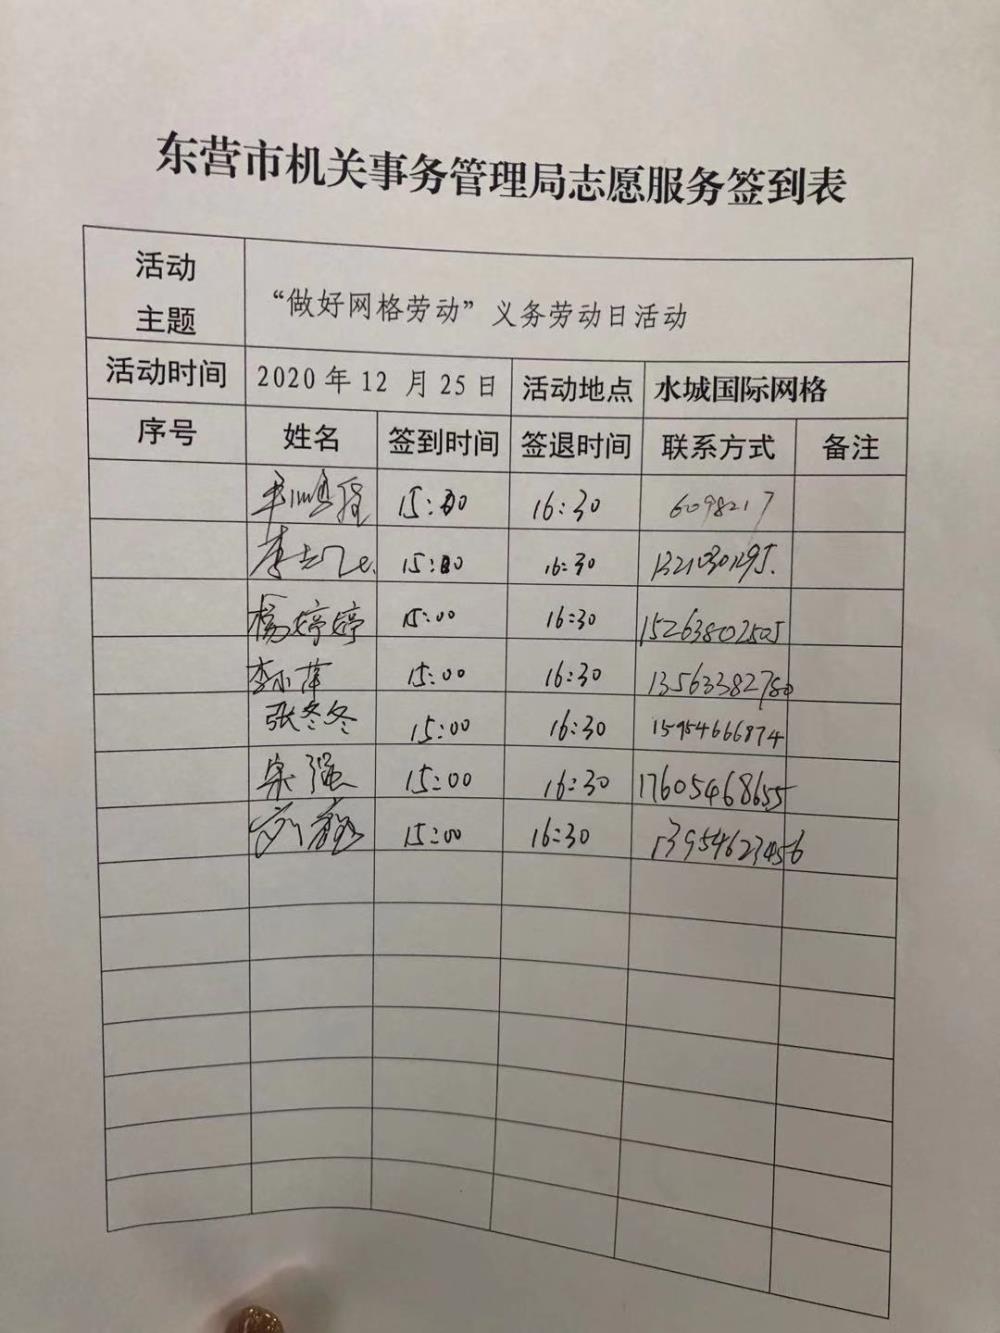 东营市机关事务管理局志愿服务签到表
活动
主题
“做好网格劳动”义务劳动日活动
活动时间 2020 年 12 月 25 日 活动地点 水城国际网格
序号 姓名 签到时间 签退时间 联系方式 备注
15:00 16:30 6098217
李 15:00 16:30 13210301295.
杨婷婷 15:00 16:30 15263802505
李小萍 15:00 16:30 13563382780
张冬冬 15:00 16:30 15954666874
强 15:00 16:30 17605468655
刘 15:00 16:30 13954623456